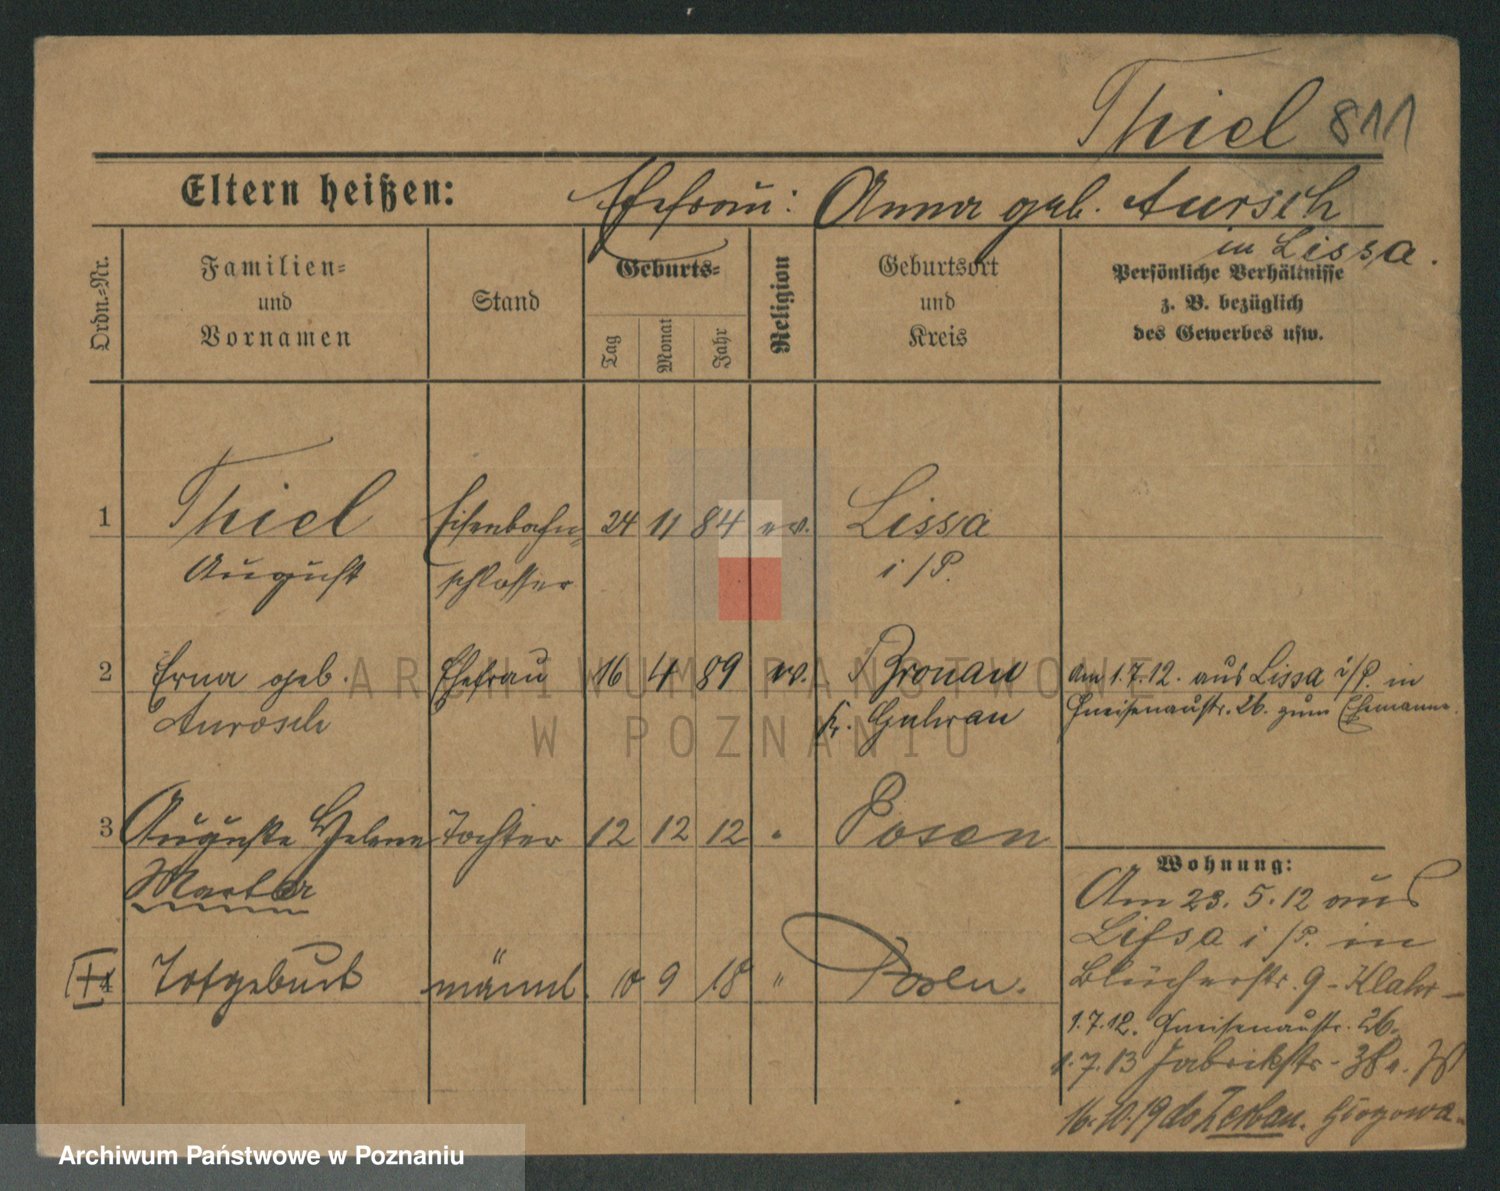 Thiel 811
Eltern heißen: Ehefrau: Anna geb. Aursch
in Lissa.
Ordn.-Nr.
Familien-
und
Vornamen
Stand
Geburts-
Tag
Monat
Jahr
Religion
Geburtsort
und
Kreis
Persönliche Verhältnisse
z. B. bezüglich
des Gewerbes usw.
1 Thiel Eisenbahn- 24 11 84 ev. Lissa
August schlosser i/P.
2 Erna geb. Ehefrau 16 4 89 ev. Bronau am 1.7.12. aus Lissa i/P. in
Aurosch Kr. Guhrau Gneisenaustr. 26. zum Ehemanne.
3 Auguste Helene Tochter 12 12 12 " Posen
Martha
Wohnung:
Am 23.5.12 aus
Lissa i/P. in
4 Totgeburt männl. 10 9 18 " Posen.
Blücherstr. 9 - Klahr -
1.7.12. Gneisenaustr. 26.
1.7.13 Fabrikstr. 38
16.10.19 do Zerbau. Glogowa
ARCHIWUM PAŃSTWOWE
W POZNANIU
Archiwum Państwowe w Poznaniu